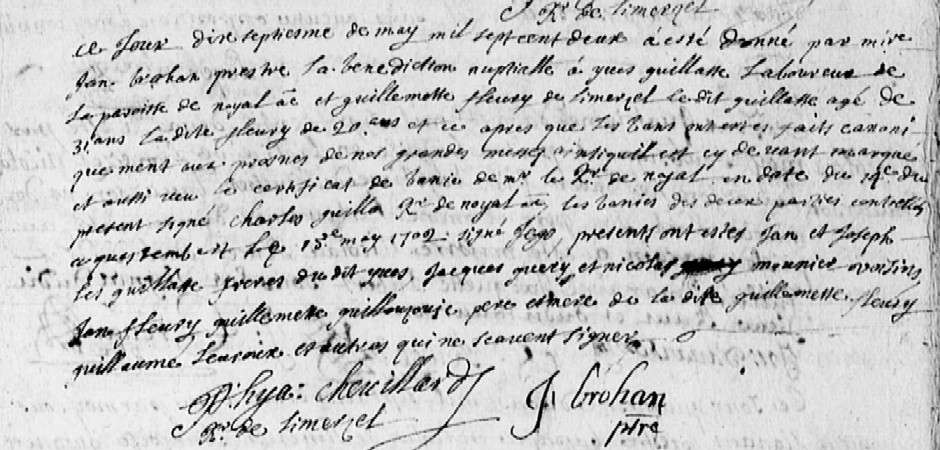 Rr de limerzel
ce Jour dixseptiesme de may mil septcent deux à esté donné par mire
Jan brohan prestre La benediction nuptialle à yves guillasse Laboureur de
La paroisse de noyal et guillemette fleury de limerzel le dit guillasse agé de
31 ans La dite fleury de 20 ans et ce apres que les bans ont estés faits canoni
quement aux prosnes de nos grandes messes ainsiquil est cy devant marqué
et aussi veu le certificat de banie de mr le Rr de noyal en date du 14e du
present signé Charles guillo Rr de noyal les banies des deux parties
a questembert le 13e may 1702 signé Jego presents ont estés Jan et Joseph
les guillasse freres du dit yves, Jacques guery et nicolas meunier
Jan fleury guillemette pere et mere de la dite guillemette fleury
guillaume et autres qui ne scavent signer
hya: chevillard J brohan
Rr de limerzel ptre